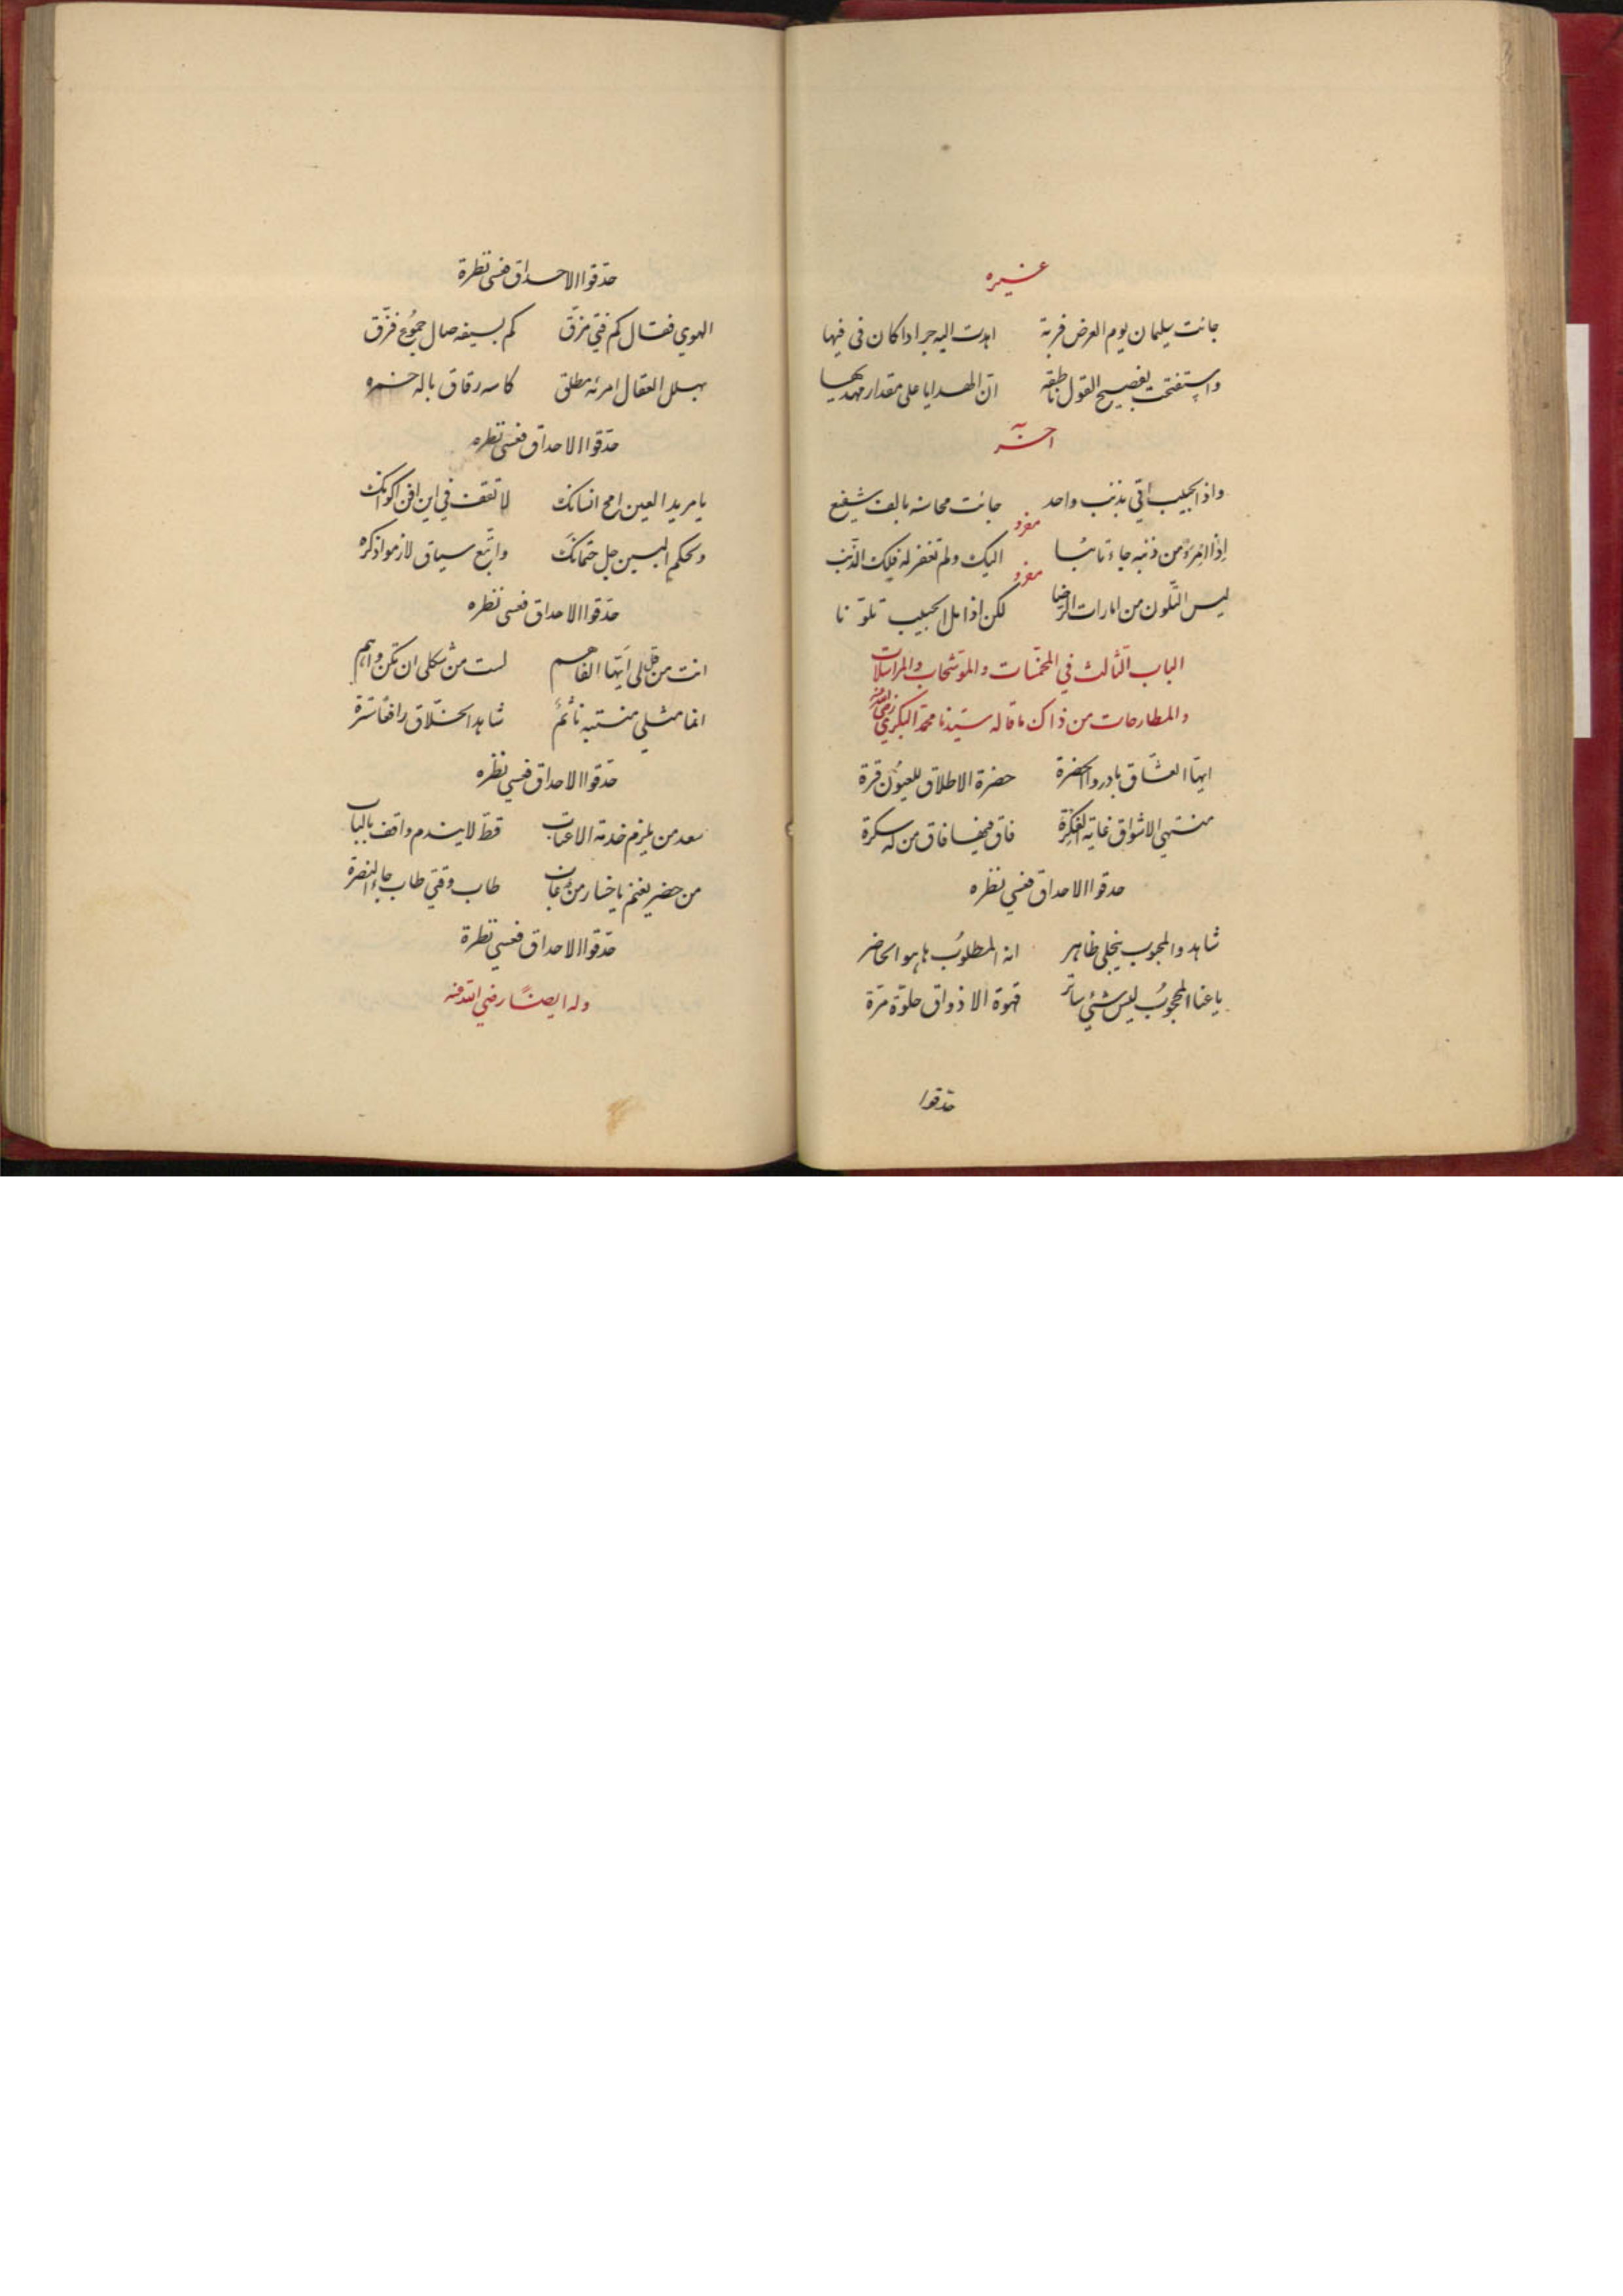 غيره
جائت سليمان يوم العرض قربة اهدت اليه جرادا كان في فيها
واستفتحت بفصيح القول ناطقة ان الهدايا على مقدار مهديها
آخر
واذا الحبيب اتي بذنب واحد جائت محاسنه بالف شفيع
مفرد
اذا امرؤ من ذنبه جاء تائبا اليك ولم تغفر له فلك الذنب
مفرد
ليس التلون من امارات الرضا لكن اذا مل الحبيب تلونا
الباب الثالث في المخمسات والموشحات والمراسلات
والمطارحات من ذاك ما قاله سيدنا محمد البكري رضي الله عنه
ايها العشاق بادروا الحضرة حضرة الاطلاق للعيون قرة
منتهي الاشواق غاية الفكرة فاق فيها فاق من له سكرة
حدقوا الاحداق فعسي نظره
شاهدوا المحبوب ينجلي ظاهر انه المطلوب ها هو الحاضر
يا عنا المحجوب ليس شئ ساتر قهوة الاذواق حلوة مرة
حدقوا
حدقوا الاحداق فعسى نظرة
الهوي فقال كم فتي مزق كم بسيفه صال جموع فرق
كاسه رقاق باله خمره
حدقوا الاحداق فعسى نظره
يا مريد العين امح انسانك لا تقف في اين افن اكوانك
وبحكم البين حل حتمانك واتبع سياق لازموا ذكره
حدقوا الاحداق فعسى نظره
انت من قل لى ايها الفاهم لست من شكلى ان تكن واهم
انما مثلي منتبه نائم شاهد الخلاق رافعا ستره
حدقوا الاحداق فعسي نظره
سعد من يلزم خدمة الاعتاب قط لا يندم واقف بالباب
من حضر يغنم يا خسار من غاب طاب وقتي طاب جاء النصرة
حدقوا الاحداق فعسي نظرة
وله ايضا رضي الله عنه